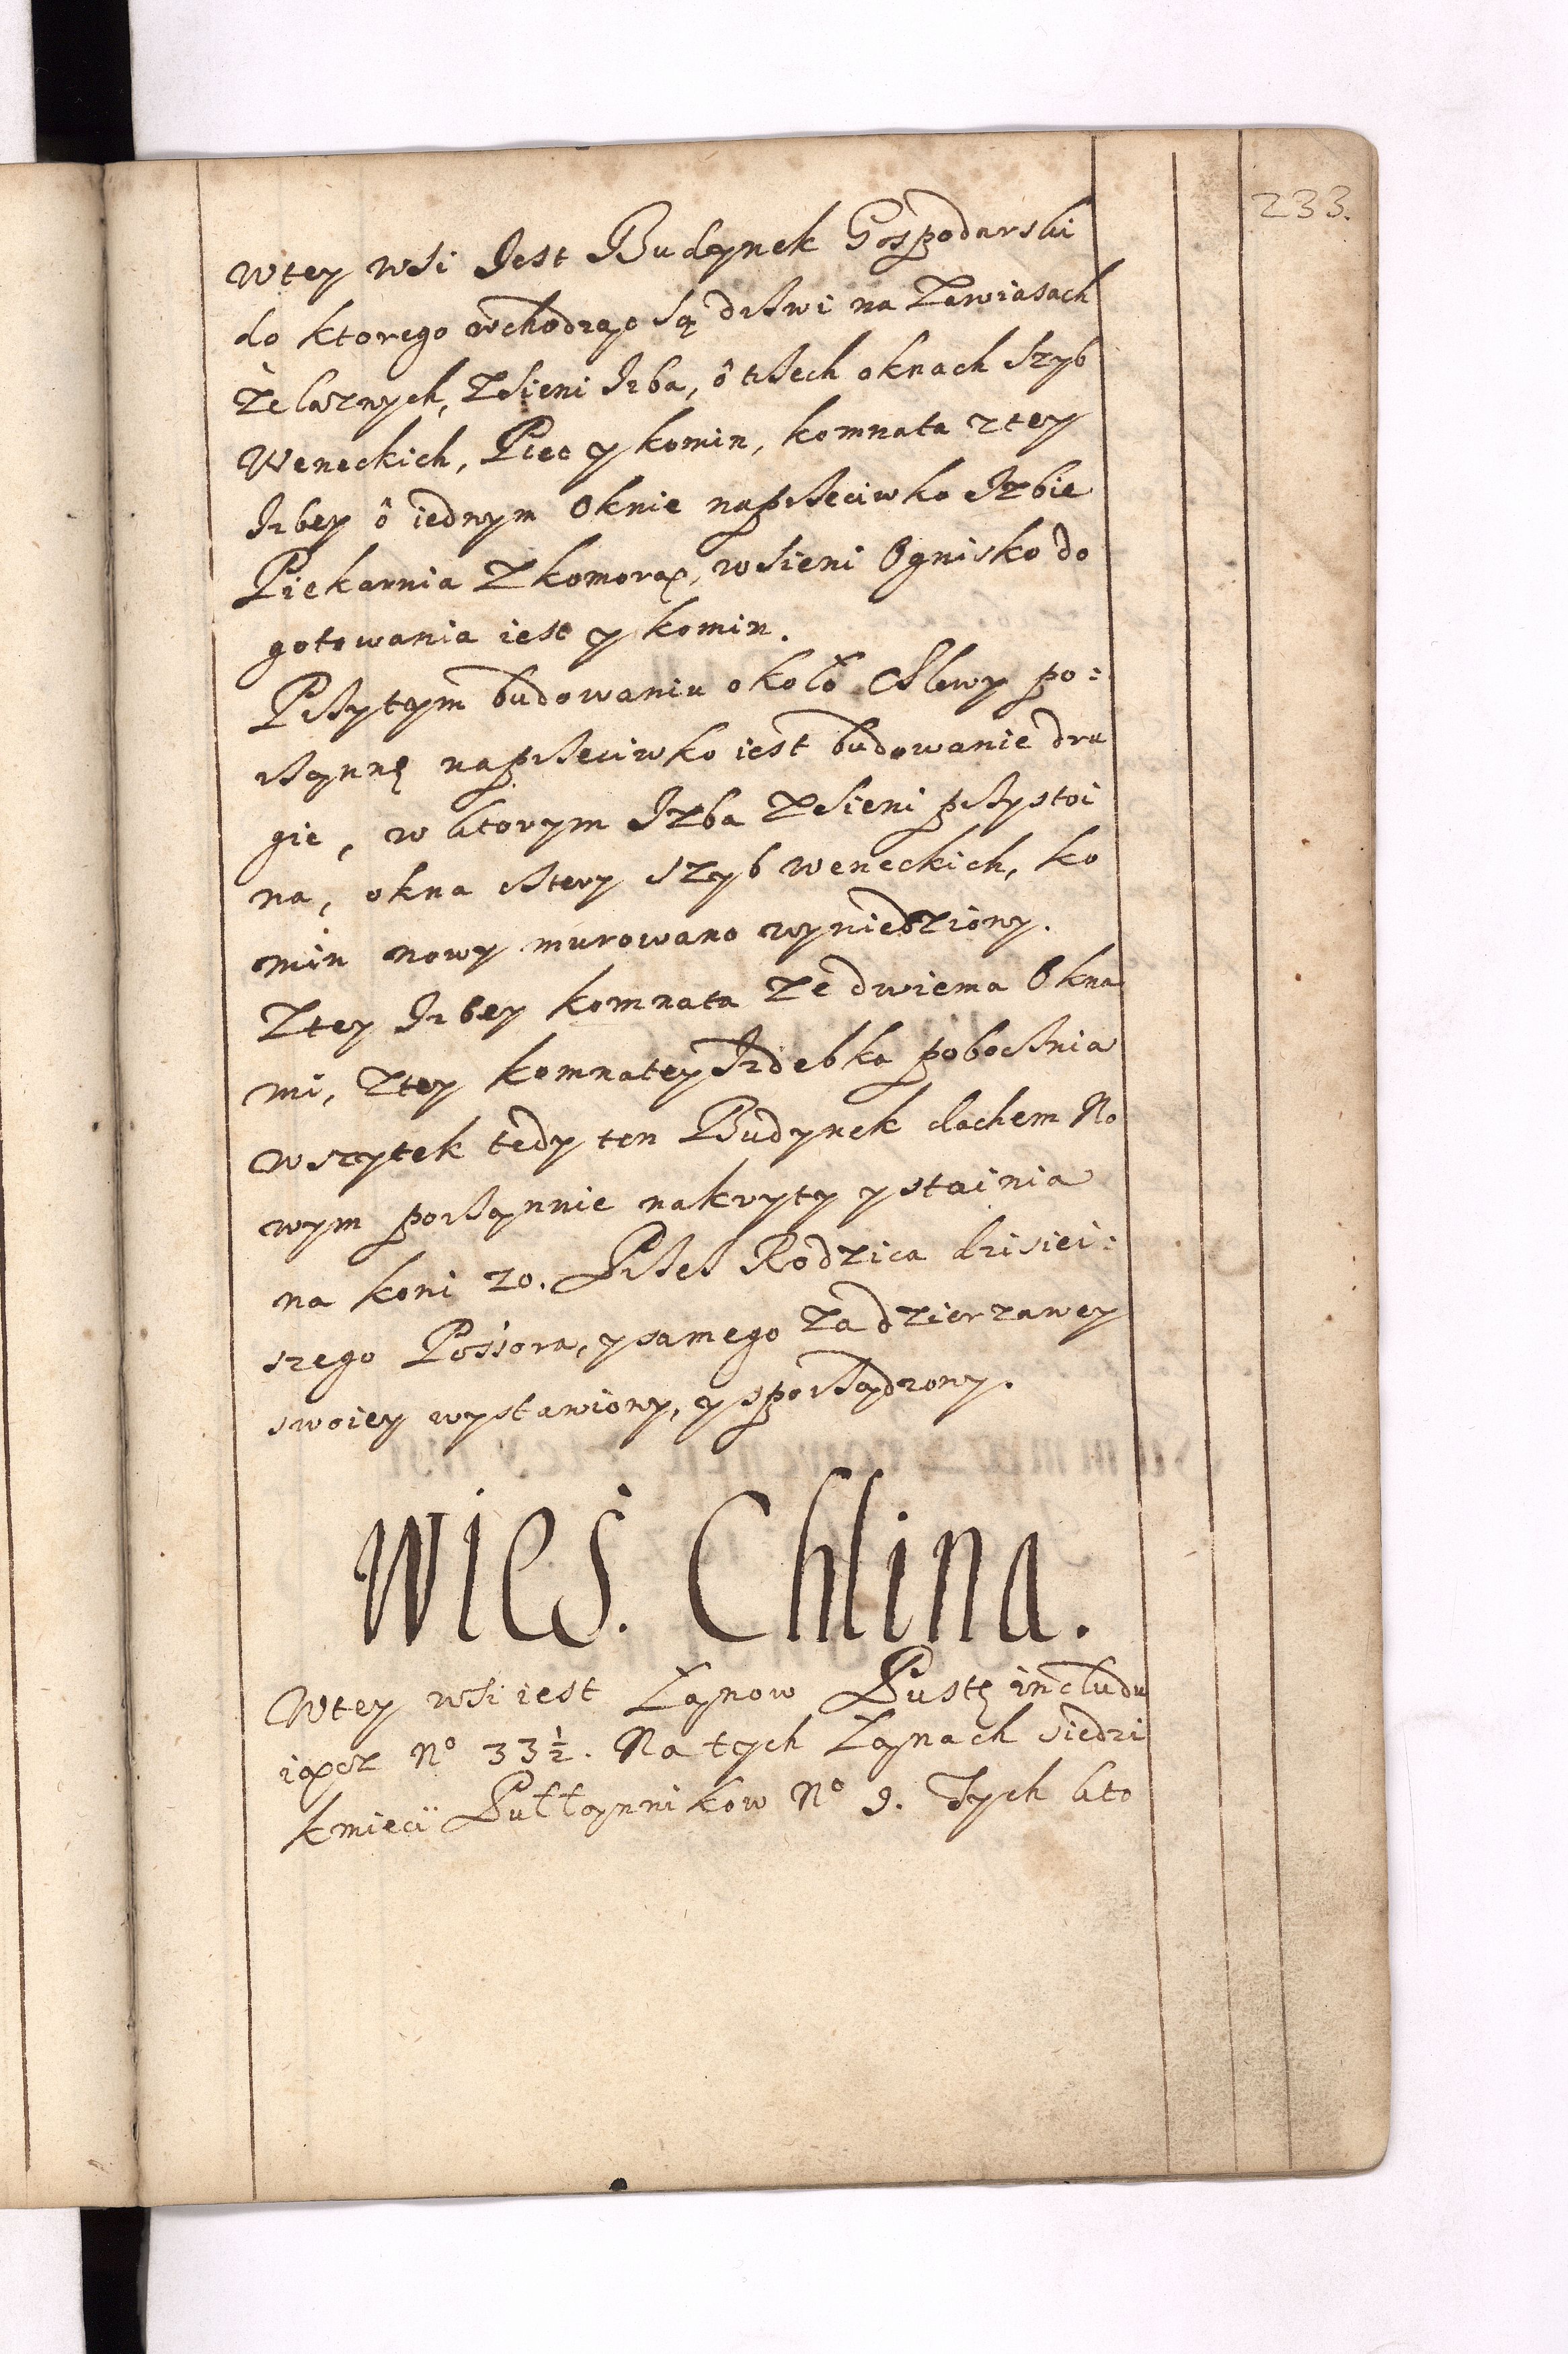 233.
Wtey wsi Jest Budynek Gospodarski
do ktorego wchodząc są drzwi na Zawiasach
Żelaznych, Zsieni Izba, ô trzech oknach szyb
Weneckich, Piec y komin, komnata ztey
Izbey ô iednym Oknie naprzeciwko Izbie
Piekarnia Zkomorą, wsieni Ognisko do
gotowania iest y komin.
Przytym budowaniu około Chlewy po:
rządnę naprzeciwko iest budowanie dru
gie, w ktorym Izba Zsieni przystoi
na, okna cztery szyb weneckich, ko
min nowy murowano wyniedziony.
Ztey Izbey komnata Ze dwiema Okna
mi, Ztey komnatey Izdebka pobocznia
wszytek tedy ten Budynek dachem No
wym porządnie nakryty y stainia
na koni 20. Przez Rodzica dzisiei:
szego Possora, y samego Za dzierzawey
swoiey wystawiony, y sporządzony.
Wieś. Chlina.
Wtey wsi iest Łanow Pustę includu
iącz No 33½. Na tych Łanach siedzi
kmieci Pułłannikow No 9. Tych kto